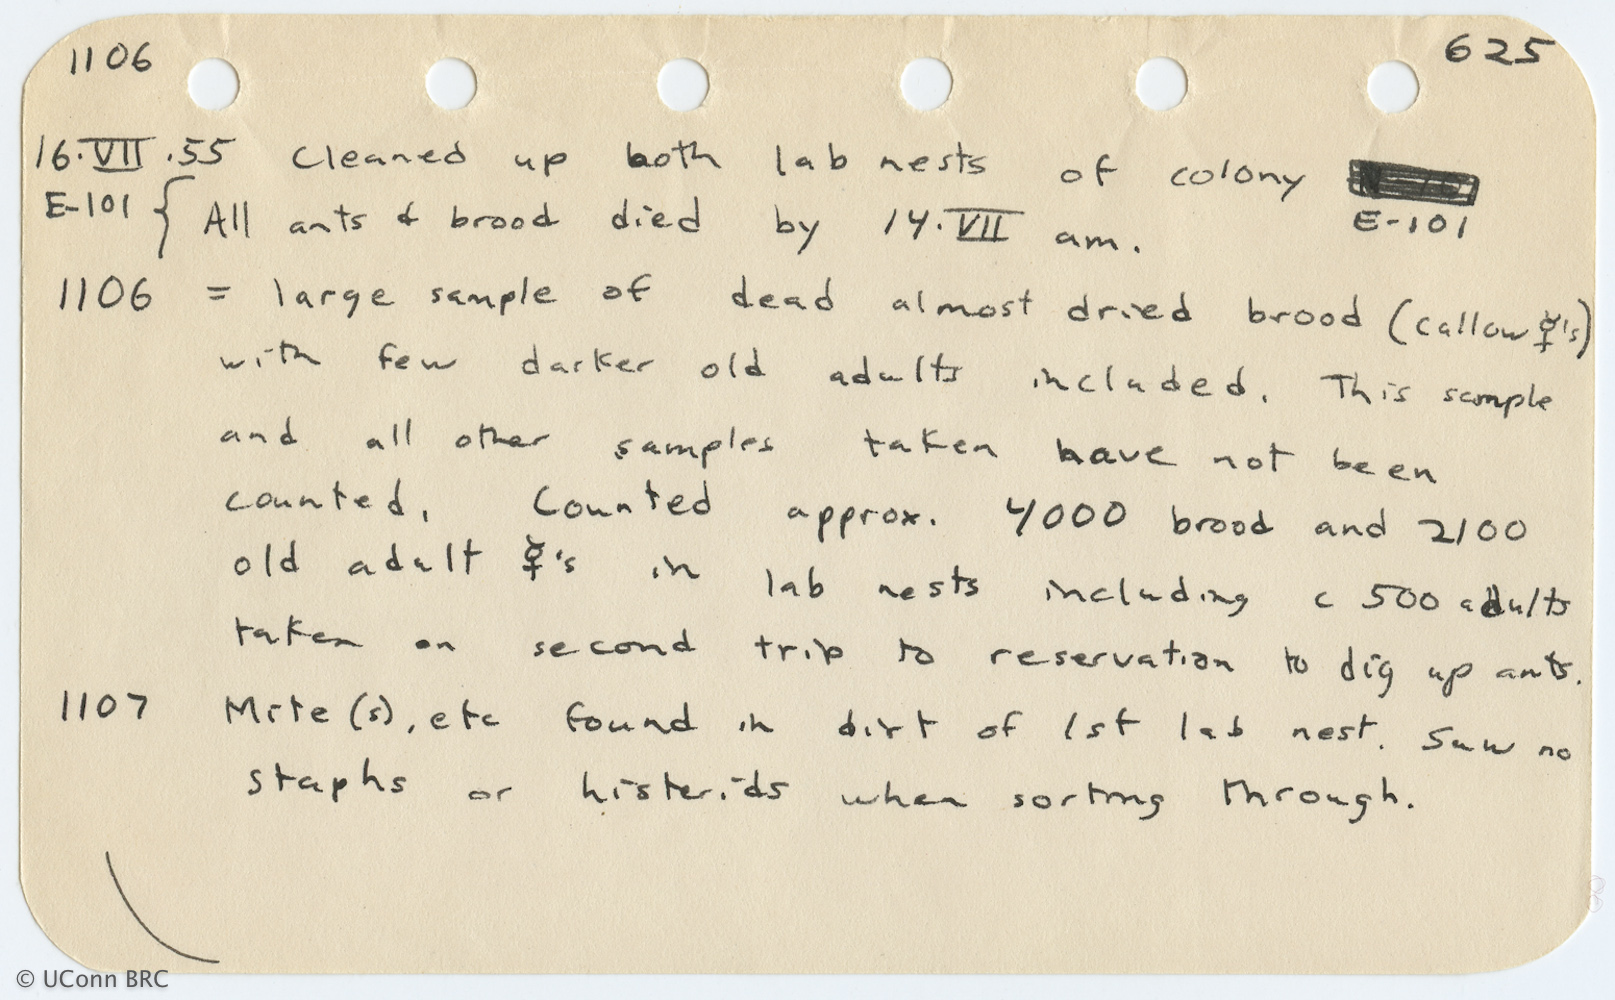 1106 625
16.VII.55 Cleaned up both lab nests of colony
E-101 { All ants & brood died by 14.VII am. E-101
1106 = large sample of dead almost dried brood (callow ☿'s)
with few darker old adults included. This sample
and all other samples taken have not been
counted. Counted approx. 4000 brood and 2100
old adult ☿'s in lab nests including c 500 adults
taken on second trip to reservation to dig up ants.
1107 Mite(s), etc found in dirt of 1st lab nest. Saw no
staphs or histerids when sorting through.
© UConn BRC